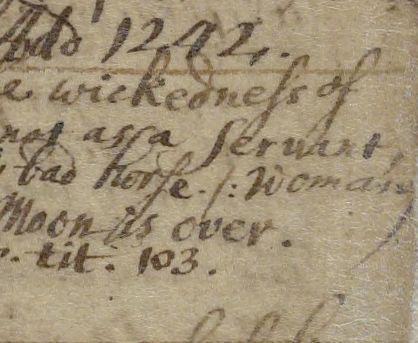 1242.
e wickedneſs of
not as a Servant,
bad horſe. /: Woman
Moon is over.
. tit. 103.